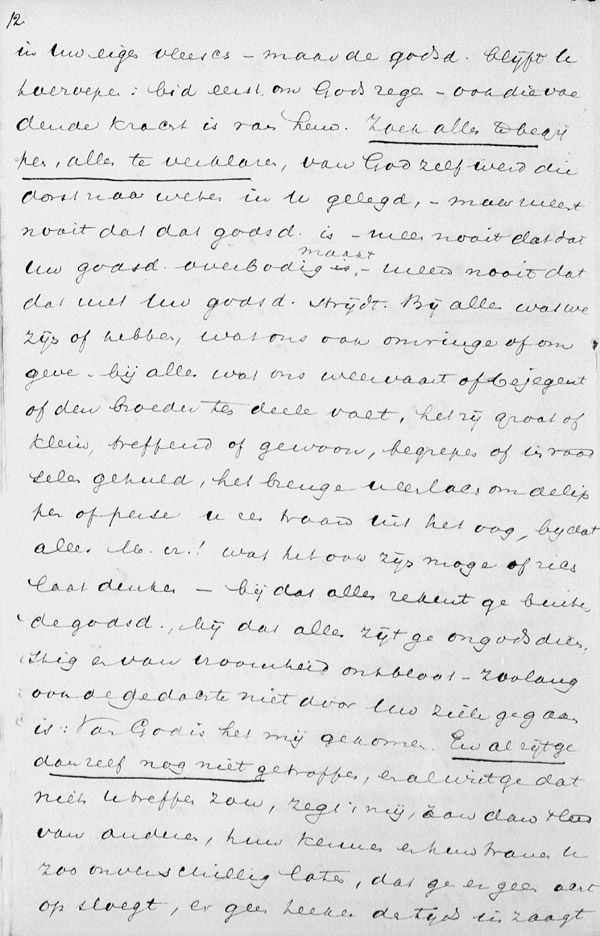 12
in Uw eigen vleesch – maar de godsd. blijft U
toeroepen: bid eerst om Gods zegen – ook die voe
dende kracht is van hem. Zoek alles te begrij
pen, alles te verklaren, van God zelf werd die
dorst naar weten in U gelegd, – maar meent
nooit dat dat godsd. is – meen nooit dat dat
maakt
Uw godsd. overbodig is, – meen nooit dat
dat met Uw godsd. strijdt. Bij alles wat we
zijn of hebben, wat ons ook omringe of om
geve – bij alles wat ons weervaart of bejegent
of den broeder ten deele valt, het zij groot of
klein, treffend of gewoon, begrepen of in raad
selen gehuld, het brenge U een lach om de lip
pen of perse U een traan uit het oog, bij dat
alles M. er.! wat het ook zijn moge of zich
laat denken – bij dat alles rekent ge buiten
de godsd., bij dat alles zijt ge ongodsdien
stig en van vroomheid ontbloot – zoolang
ook de gedachte niet door Uw ziele gegaan
is: Van God is het mij gekomen. En al zijt ge
dan zelf nog niet getroffen, en al wist ge dat
niets U treffen zou, zegt mij, zou dan 't leed
van anderen, hun kennen en hun tranen U
zoo onverschillig laten, dat ge er geen acht
op sloegt, er geen teeken des tijds in zaagt